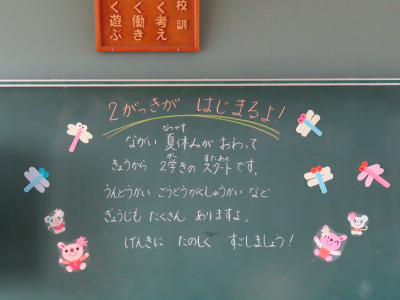 校訓
く考え
く働き
く遊ぶ
2がっきが はじまるよ!
なつやす
ながい 夏休みが おわって
がっ すたあと
きょうから 2学きの スタートです。
うんどうかい ごうどうがくしゅうかい など
ぎょうじも たくさん ありますよ。
げんきに たのしく すごしましょう!